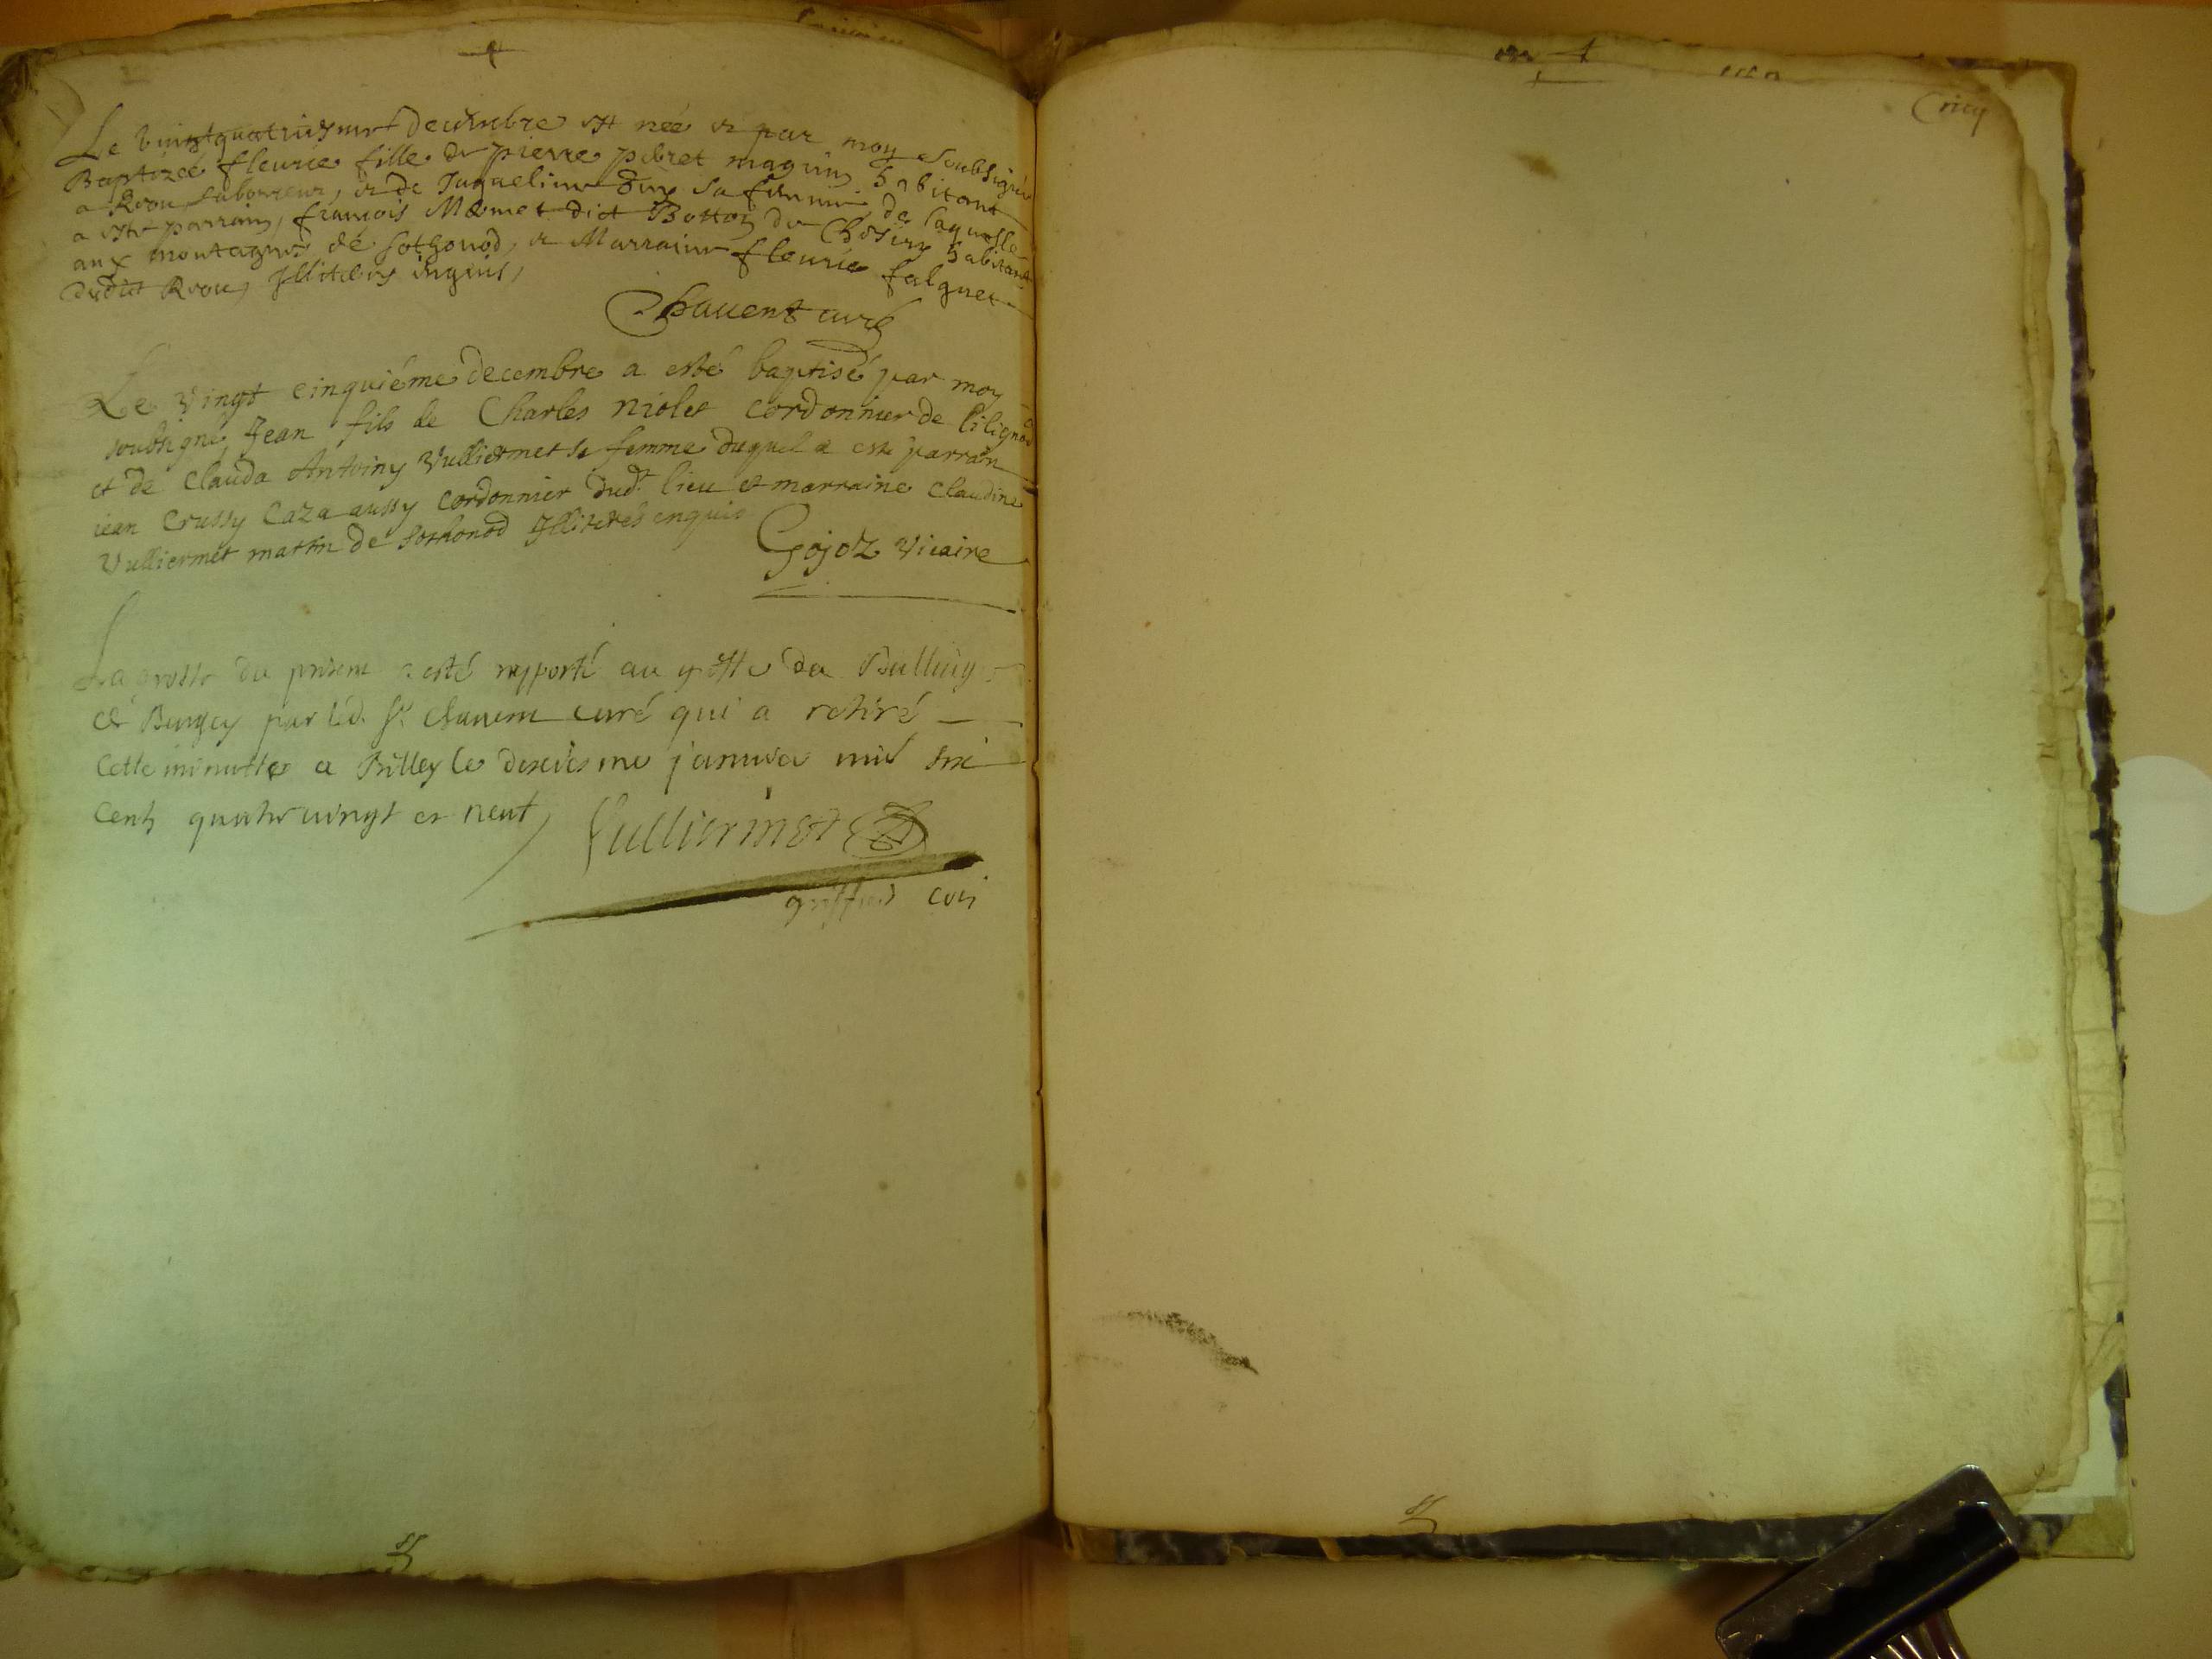 Le vingtquatriesme decembre est née et par moy soubsigné
Baptizée fleurie fille de pierre pibret maguin habitant
a Rvou, laboureur, et de Jaqueline sa femme, de laquelle
a este parrain, françois Mermet dict Botton de habitant
aux montagnes de sothonod, et Marraine fleurie falquet
dudict Rvou, Illiteres inquis,
Chavent curé
Le vingt cinquiéme decembre a esté baptisé par moy
soubsigné Jean fils de Charles niolet cordonnier de lilignod
et de Clauda Antoiny Vulliermet sa femme duquel a esté parrain
iean Crussy Caza aussy cordonnier dudt lieu et marraine Claudine
Vulliermet de sothonod Illiteres enquis
Gojoz Vicaire
La grosse du present a esté rapporté au greffe du Bailliage
de Bugey par led. Sr. Chavent curé qui a retiré
Cette minutte a Belley le dixiesme janvier mil six
cents quatre vingt et neuf,
Vulliermet
greffier
Cricy